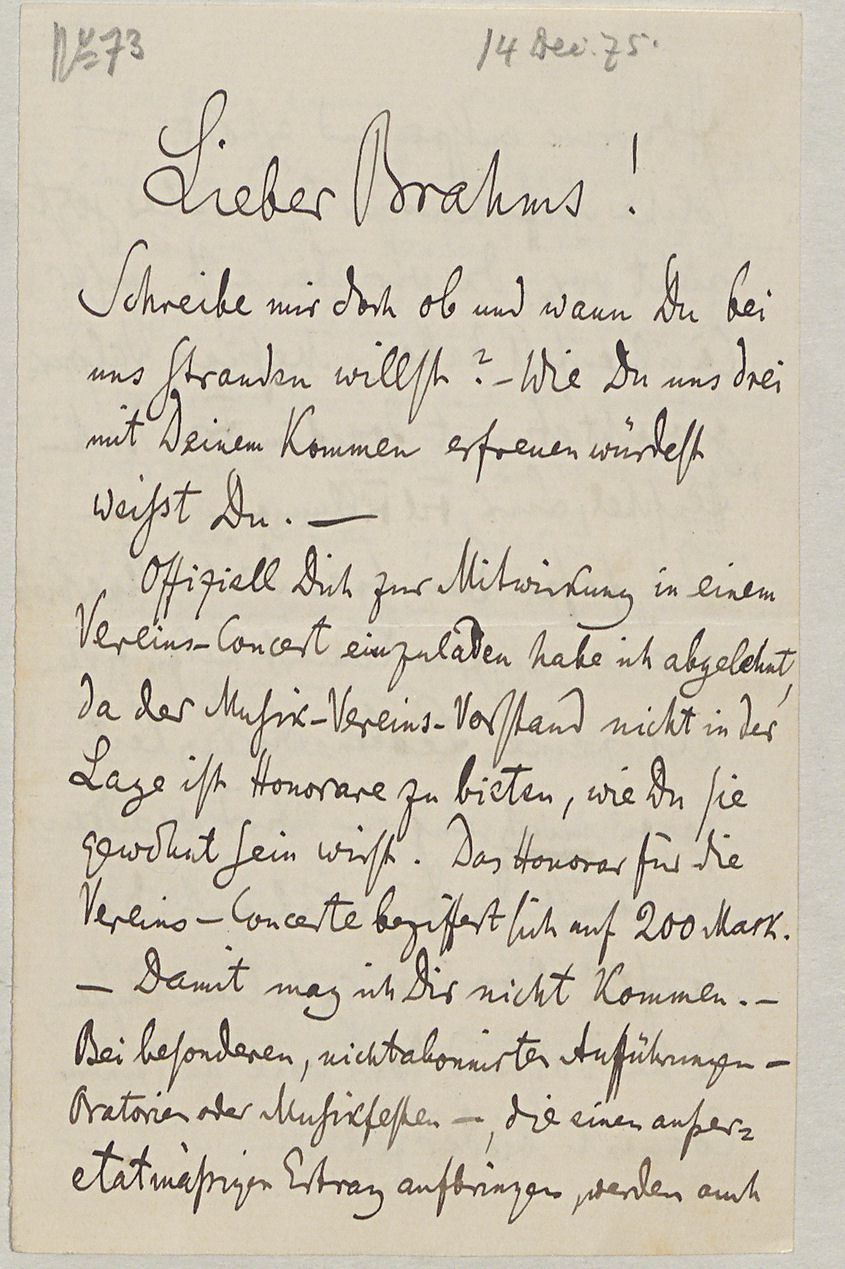 No 73
14 Dec. 75.
Lieber Brahms!
Schreibe mir doch ob und wann Du bei
uns stranden willst? – Wie Du uns drei
mit Deinem Kommen erfreuen würdest
weißt Du. —
Offiziell Dich zur Mitwirkung in einem
Vereins-Concert einzuladen habe ich abgelehnt,
da der Musik-Vereins-Vorstand nicht in der
Lage ist Honorare zu bieten, wie Du sie
gewöhnt sein wirst. Das Honorar für die
Vereins-Concerte beziffert sich auf 200 Mark.
– Damit mag ich Dir nicht kommen. –
Bei besonderen, nichtabonnirten Aufführungen –
Oratorien oder Musikfesten –, die einen außer=
etatmäßigen Ertrag aufbringen, werden auch